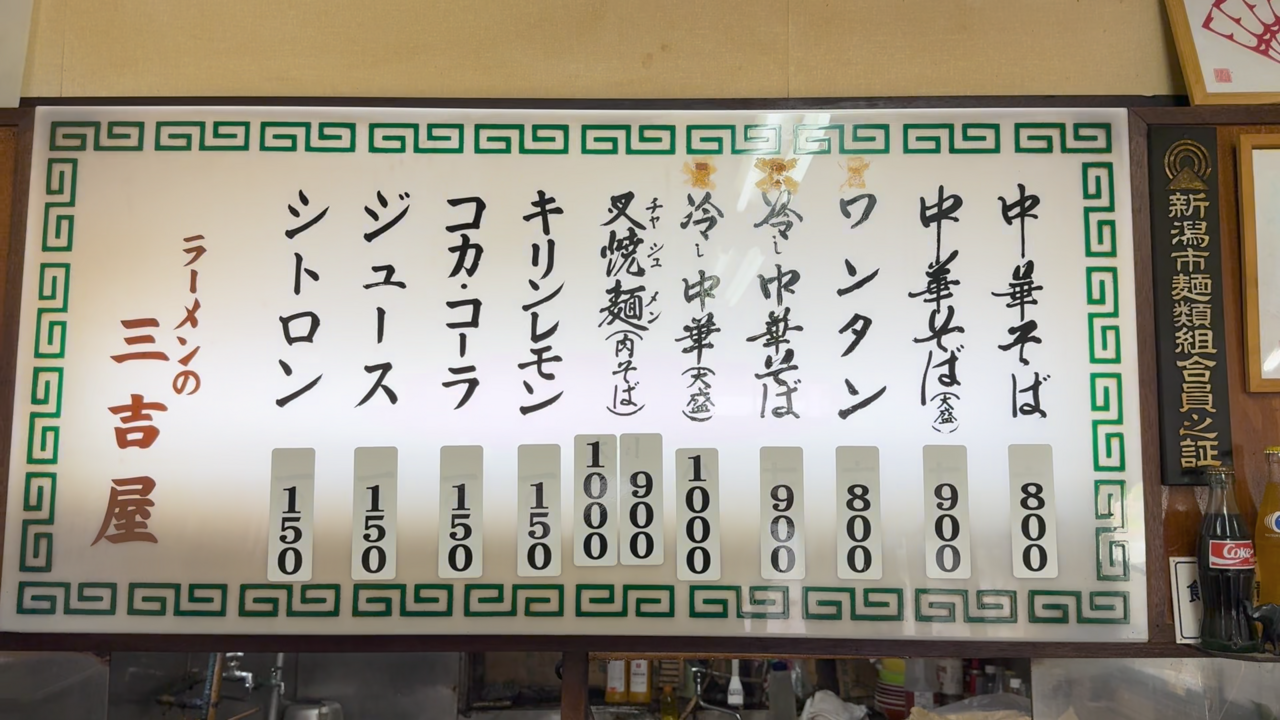 中華そば
800
中華そば(大盛)
900
ワンタン
800
冷し中華そば
900
冷し中華(大盛)
1000
叉焼麺(肉そば)
チャシュメン
900
1000
キリンレモン
150
コカ・コーラ
150
ジュース
150
シトロン
150
ラーメンの
三吉屋
新潟市麺類組合員之証
Coke